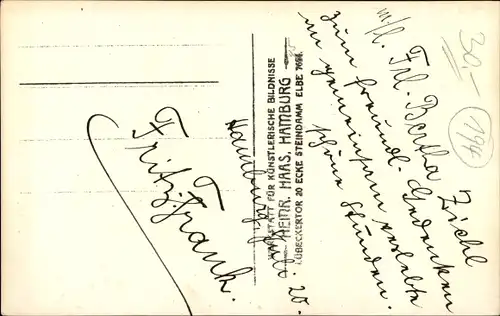 m/l. Frl. Bertha Ziehl
zum freundl. Gedenken
an gemeinsam verlebte
schöne Stunden.
WERKSTATT FÜR KÜNSTLERISCHE BILDNISSE
HEINR. HAAS, HAMBURG
LÜBECKERTOR 20 ECKE STEINDAMM ELBE 7694.
Hamburg
20.
Fritz Frank.
30-
194